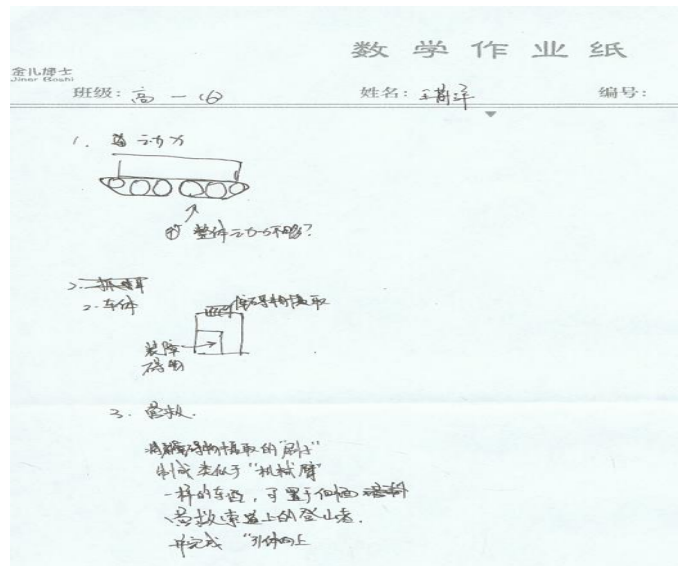 数学作业纸
金儿博士
Jiner Boshi
班级：高一(6) 姓名： 编号：
1. 动力
整体动力不够？
2. 车体
障碍物摄取
装障
碍物
3. 营救.
将障碍物摄取的“刷子”
制成类似于“机械臂”
一样的东西，可置于侧面
营救索道上的登山者.
并完成“引体向上